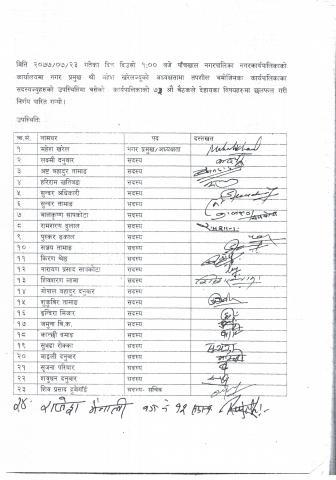 मिति २०७७/०७/२३ गतेका दिन दिउसो १:०० बजे पाँचखाल नगरपालिका नगरकार्यपालिकाको
कार्यालयमा नगर प्रमुख श्री महेश खरेलज्यूको अध्यक्षतामा तपशील बमोजिमका कार्यपालिकाका
सदस्यज्यूहरुको उपस्थितिमा बसेको कार्यपालिकाको ७३ औं बैठकले देहायका विषयहरुमा छलफल गरी
निर्णय पारित गर्यो।
उपस्थिति:
क्र.सं. नामथर पद दस्तखत
१ महेश खरेल नगर प्रमुख/अध्यक्षता
२ लक्ष्मी दनुवार सदस्य
३ अष्ट बहादुर तामाङ सदस्य
४ हरिराम खतिवडा सदस्य
५ सुन्दर अधिकारी सदस्य
६ सुन्दर तामाङ सदस्य
७ बालकृष्ण सापकोटा सदस्य
८ रामशरण दुलाल सदस्य
९ पुस्कर ढकाल सदस्य
१० सञ्जय तामाङ सदस्य
११ किरण श्रेष्ठ सदस्य
१२ नारायण प्रसाद सापकोटा सदस्य
१३ शिवशरण लामा सदस्य
१४ गोपाल बहादुर दनुवार सदस्य
१५ शुकुबिर तामाङ सदस्य
१६ इन्दिरा मिजार सदस्य
१७ जमुना वि.क. सदस्य
१८ कान्छी तमाङ सदस्य
१९ सुभद्रा रोक्का सदस्य
२० माइली दनुवार सदस्य
२१ सृजना परियार सदस्य
२२ शत्रुघन दनुवार सदस्य
२३ शिव प्रसाद हुमागाईं सदस्य- सचिव
२४. राजेन्द्र मैनाली वडा नं १२